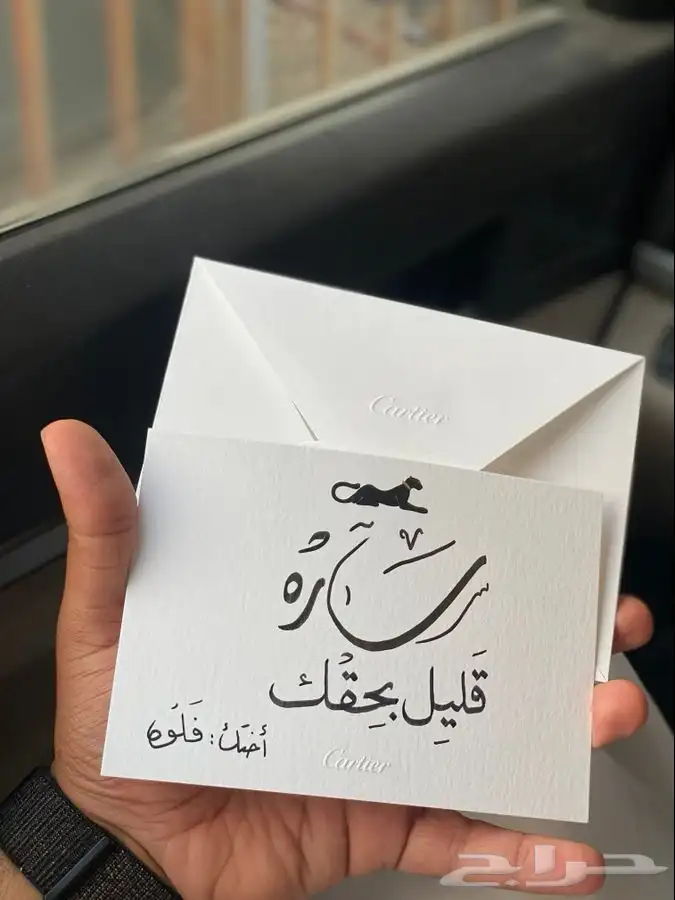 Cartier
ساره
قَليِل بحِقْك
أختك: فَلُوه
Cartier
حراج